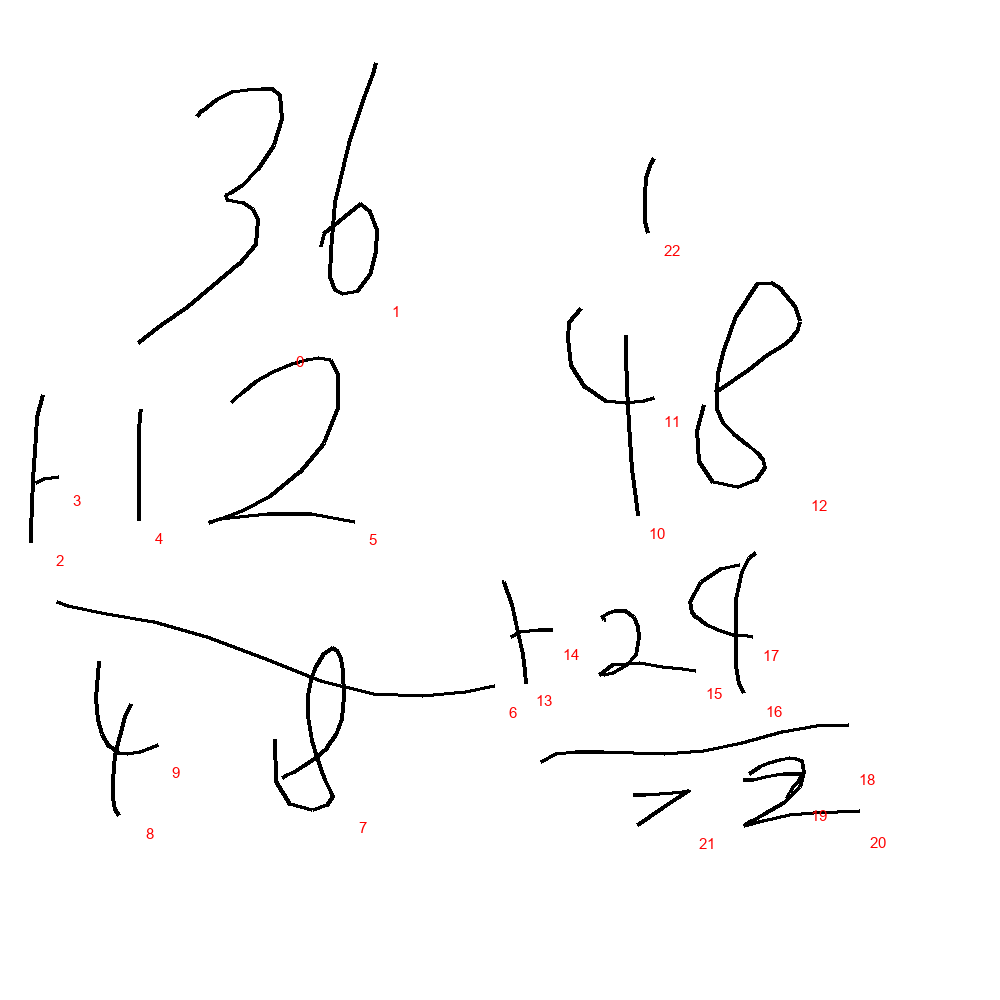 36
+12
48
1
48
+24
72
0
1
2
3
4
5
6
7
8
9
10
11
12
13
14
15
16
17
18
19
20
21
22